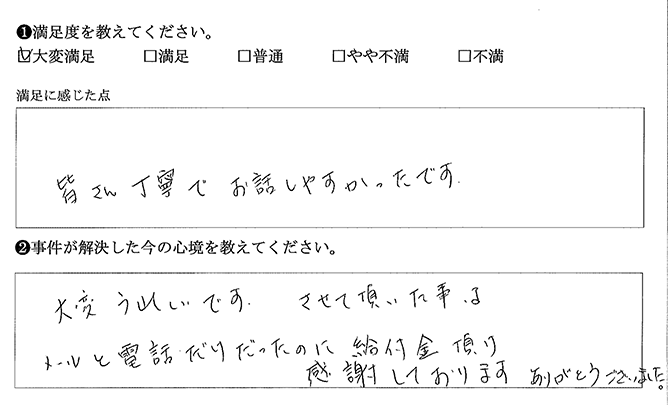 ❶満足度を教えてください。
☑大変満足 □満足 □普通 □やや不満 □不満
満足に感じた点
皆さん丁寧で お話しやすかったです。
❷事件が解決した今の心境を教えてください。
大変うれしいです。 させて頂いた事
メールと電話だけだったのに 給付金頂け
感謝しております ありがとうございました。